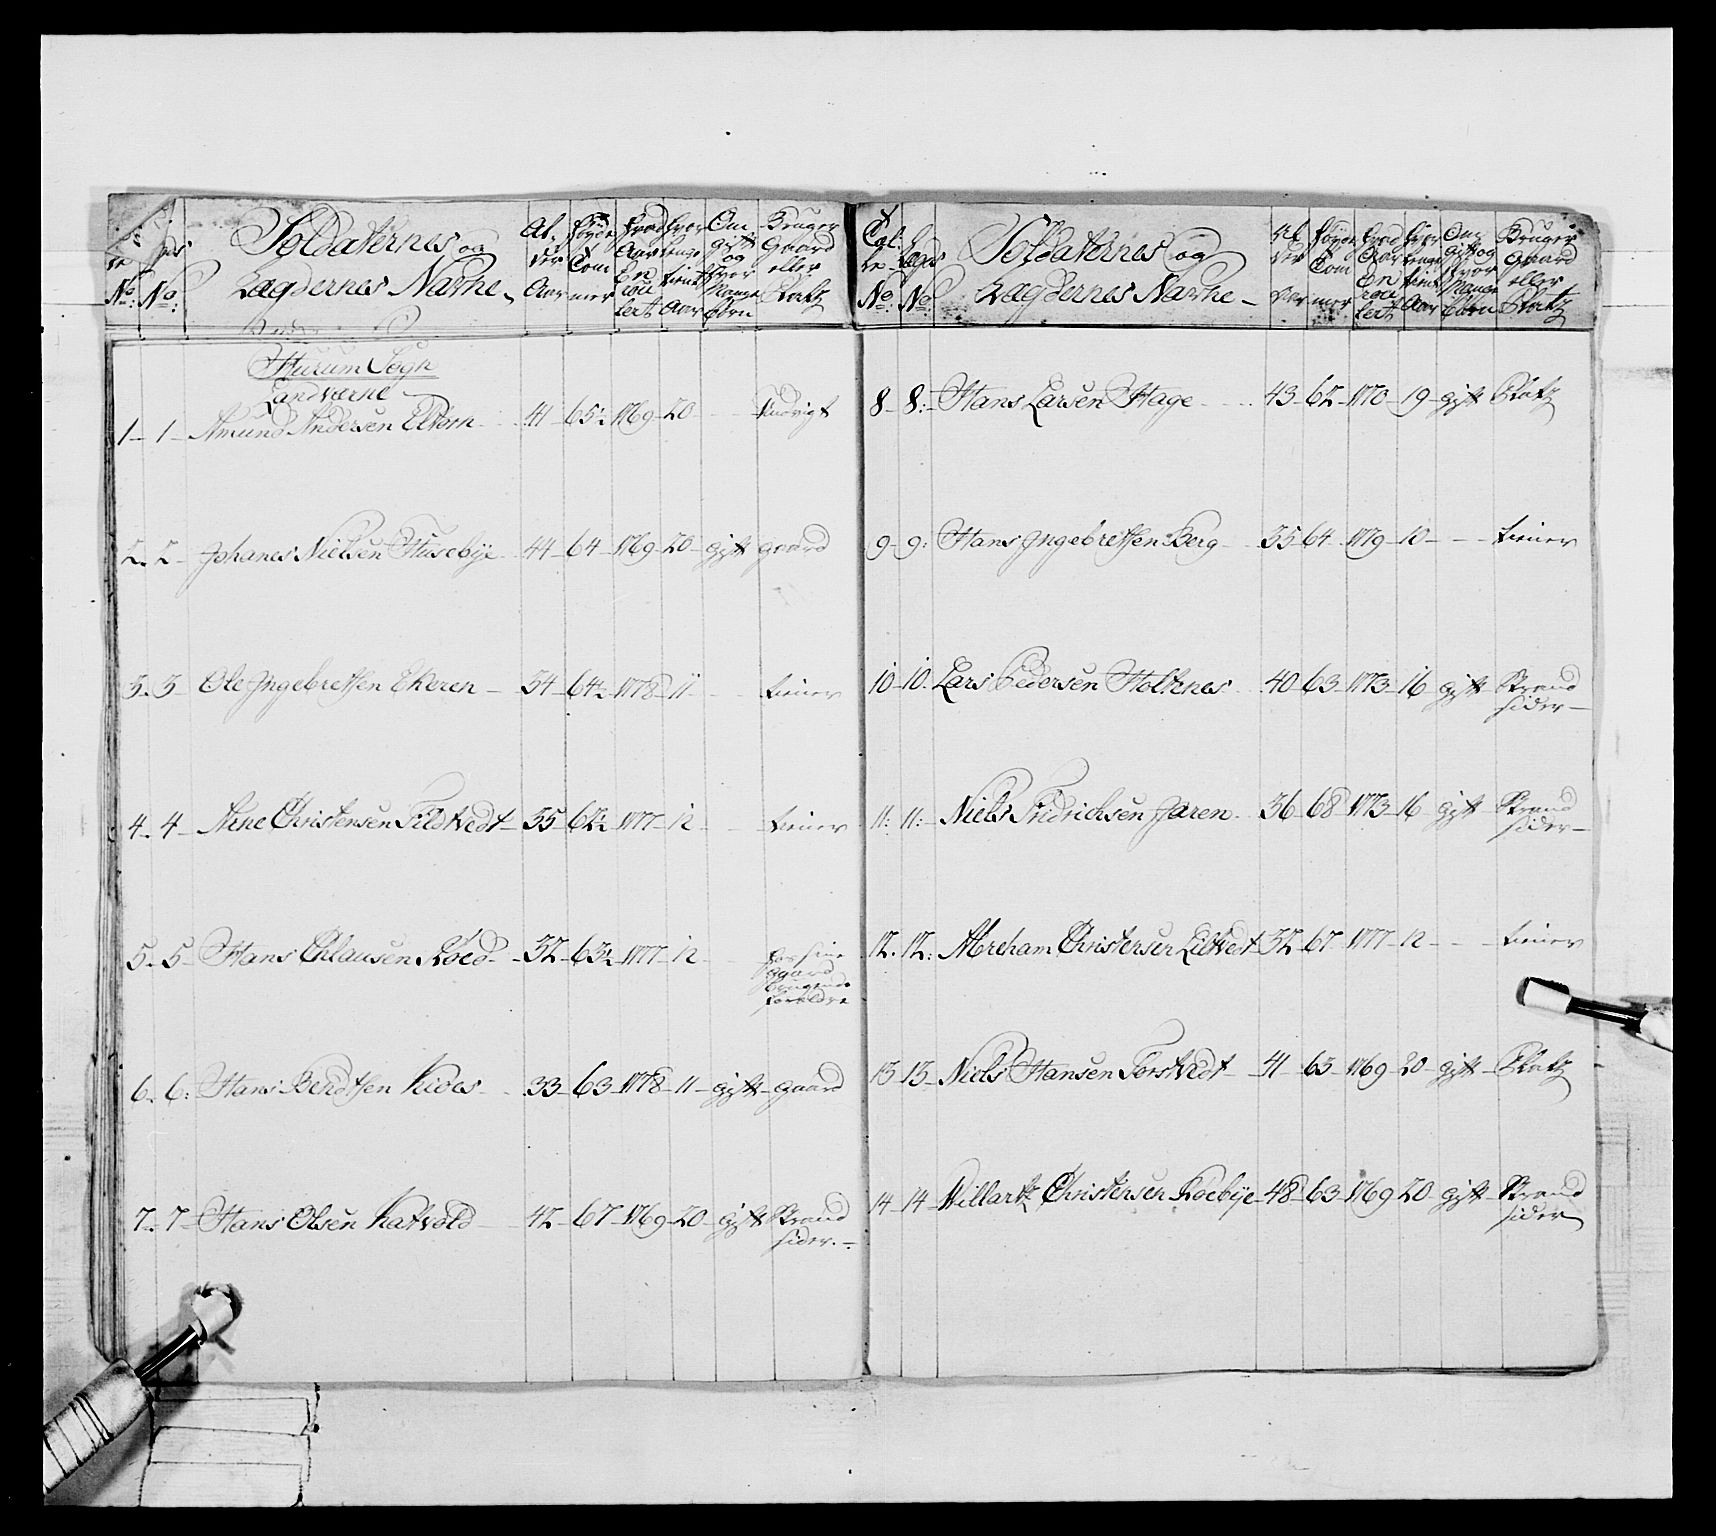 No: No:
Soldaternes og
Lægdernes Navne
Al-
der
Aar
Høyde
Tom
mer
Hvad
Aar
En
rou
lert
Hvor
lenge
tient
Aar
Om
gift
og
Hvor
Mange
Børn
Bruger
Gaard
eller
Platz
Hurum Sogn
Landværne
1 - 1 - Amund Andersen Ekern 41 - 65½ 1769 - 20 - Indrigt
2 - 2 - Johanes Nielsen Husebye 44 - 64 1769 - 20 - gift gaard
3 - 3 Ole Ingebretsen Ekeren - 34 - 64½ 1778 - 11 - tiener
4 - 4 - Christensen Fildtvedt - 35 - 62½ 1777 - 12 - tiener
5 - 5 - Hans Chlausen Røed - 32 - 63½ 1777 - 12 hos sine
gaard
brugende
forældre
6 - 6: Hans Berdtsen Kioes 33 - 63 - 1778 - 11 - gift - gaard
7 - 7 - Hans Olsen Katvold 42 - 67 - 1769 - 20 - gift Strand
sider -
No: Lægds No:
Soldaternes og
Lægdernes Navne -
Al
der
Aar
Høyde
Tom
mer
Hvad
Aar
En
rou
lert
Hvor
lenge
tient
Aar
Om
gift og
Hvor
Mange
Børn
Bruger
gaard
eller
Platz
8 - 8: Hans Larsen Hage 43 - 62 - 1770 - 19 - gift Platz
9 - 9: Hans Ingebretsen Berg 35 - 64 1779 - 10 - tiener
10 - 10. Lars Pedersen Holtenes 40 - 63 - 1773 - 16 gift Strand
sider -
11: 11: Niels Fridrichsen Jaren 36 - 68 - 1773 - 16 gift Strand
sider -
12. 12: Abreham Christensen Lillvedt 32 - 67 - 1777 - 12 - tiener
13 - 13 - Niels Hansen Torstvedt - 41 - 63 - 1769 - 20 - gift - Platz
14 - 14 - Willartz Christensen Røebye 48 - 63 - 1769 - 20 - gift Strand
sider